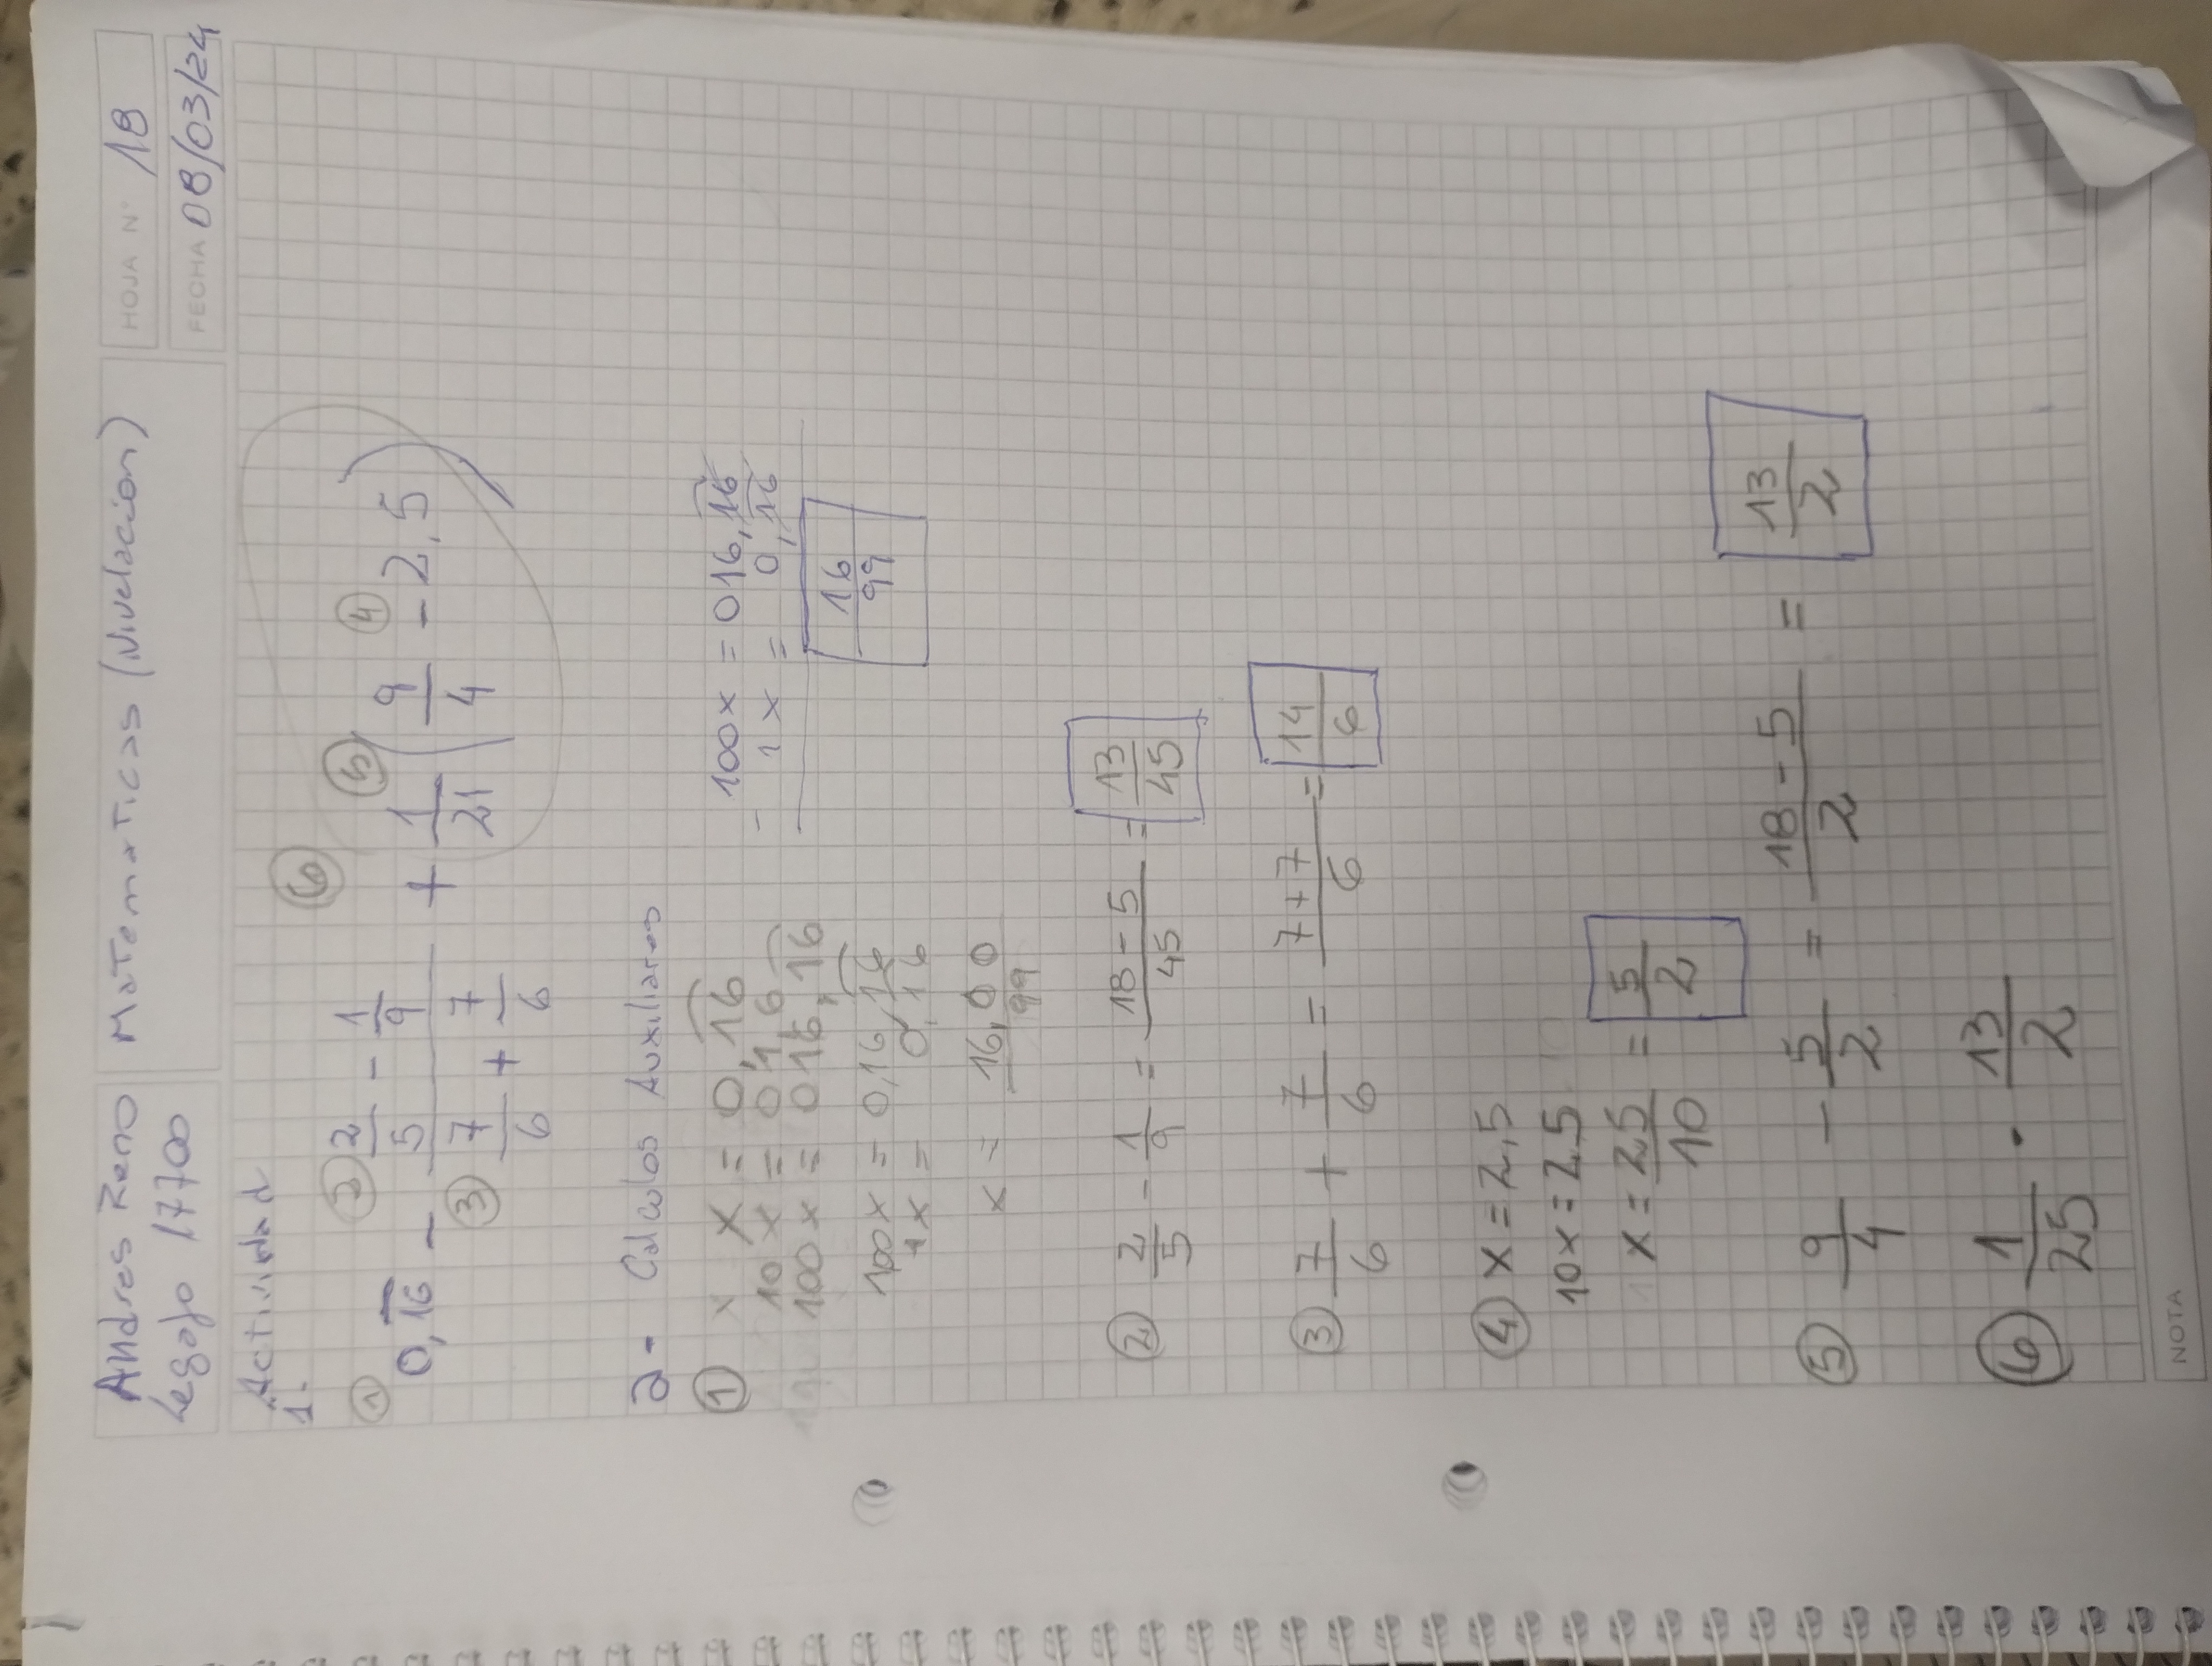 Andres Zeno Matematicas (Nivelación) HOJA N° 18
Legajo 17700 FECHA 08/03/24
Actividad
1-
① 0,16 - (② 2/5 - 1/9) / (③ 7/6 + 7/6) ⑥ + 1/21 ⑤ (9/4 ④ - 2,5)
2- Calculos Auxiliares
① x x = 0,16
10 x = 01,6
100x = 016,16
100x = 0,16,16
1x = 0,16
x = 16,00/99
100x = 016,16
- 1x = 0,16
16/99
② 2/5 - 1/9 = (18 - 5)/45 = 13/45
③ 7/6 + 7/6 = (7+7)/6 = 14/6
④ x = 2,5
10x = 25
x = 25/10 = 5/2
⑤ 9/4 - 5/2 = (18 - 5)/2 = 13/2
⑥ 1/25 · 13/2
NOTA